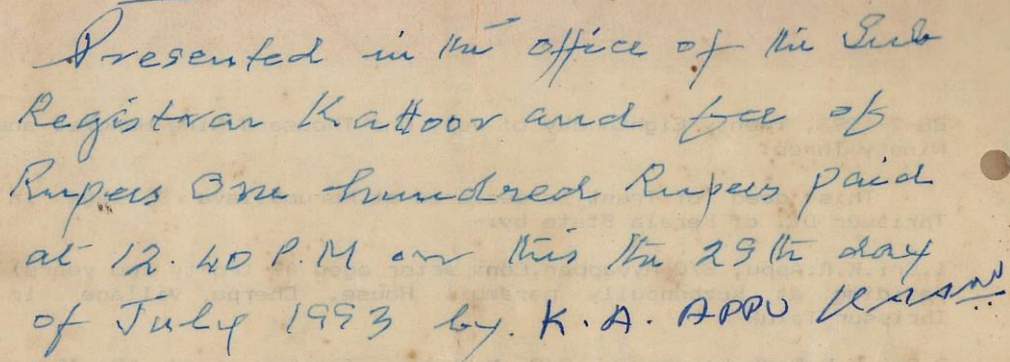 Presented in the office of the Sub
Registrar Kattoor and fee of
Rupees One hundred Rupees paid
at 12.40 P.M on this the 29th day
of July 1993 by. K. A. APPU